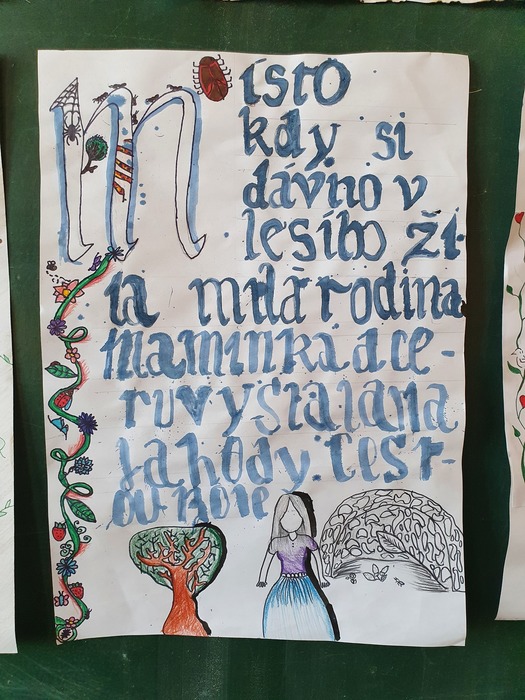 místo
kdy si
dávno v
lesíbo ži-
la milá rodina
maminka a dce-
ru vyslala na
jahody. Cest-
ou